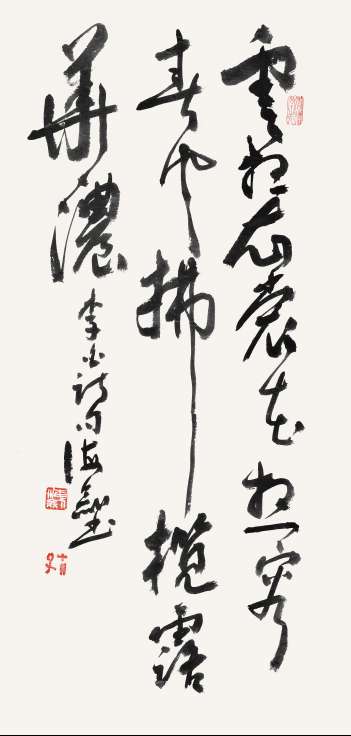 雲想衣裳花想容
春風拂檻露
華濃
李白詩句 海